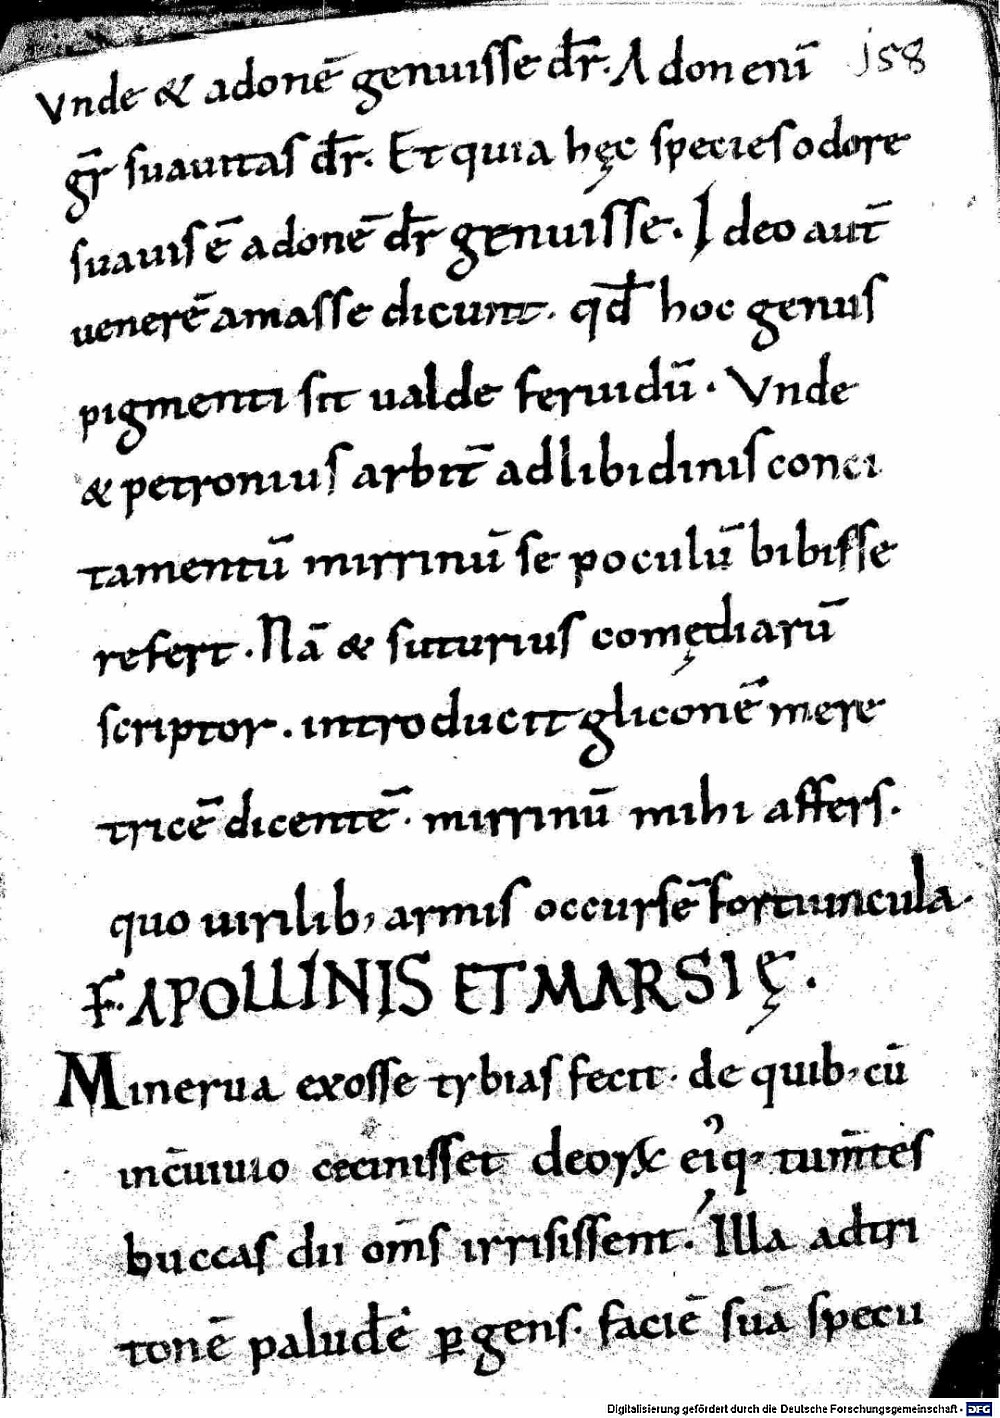 Vnde & adonē genuisse dr̄. Adon enī 158
gr̄ suauitas dr̄. Et quia hęc species odore
suauis ē adonē dr̄ genuisse. Ideo aut̄
uenerē amasse dicunt. qd̄ hoc genus
pigmenti sit ualde feruidū. Vnde
& petronius arbit̄ ad libidinis conci
tamentū mirrinū se poculū bibisse
refert. Nā & suturius comędiarū
scriptor. introducit gliconē mere
tricē dicentē. mirrinū mihi affers.
quo uirilib; armis occursē fortiuncula.
F. APOLLINIS ET MARSIĘ.
Minerua ex osse tybias fecit. de quib; cū
in c̄uiuio cecinisset deoꝝ eiꝰq; tum̄tes
buccas dii om̄s irrisissent. Illa ad tri
tonē paludē ꝑgens. faciē suā specu
Digitalisierung gefördert durch die Deutsche Forschungsgemeinschaft - DFG